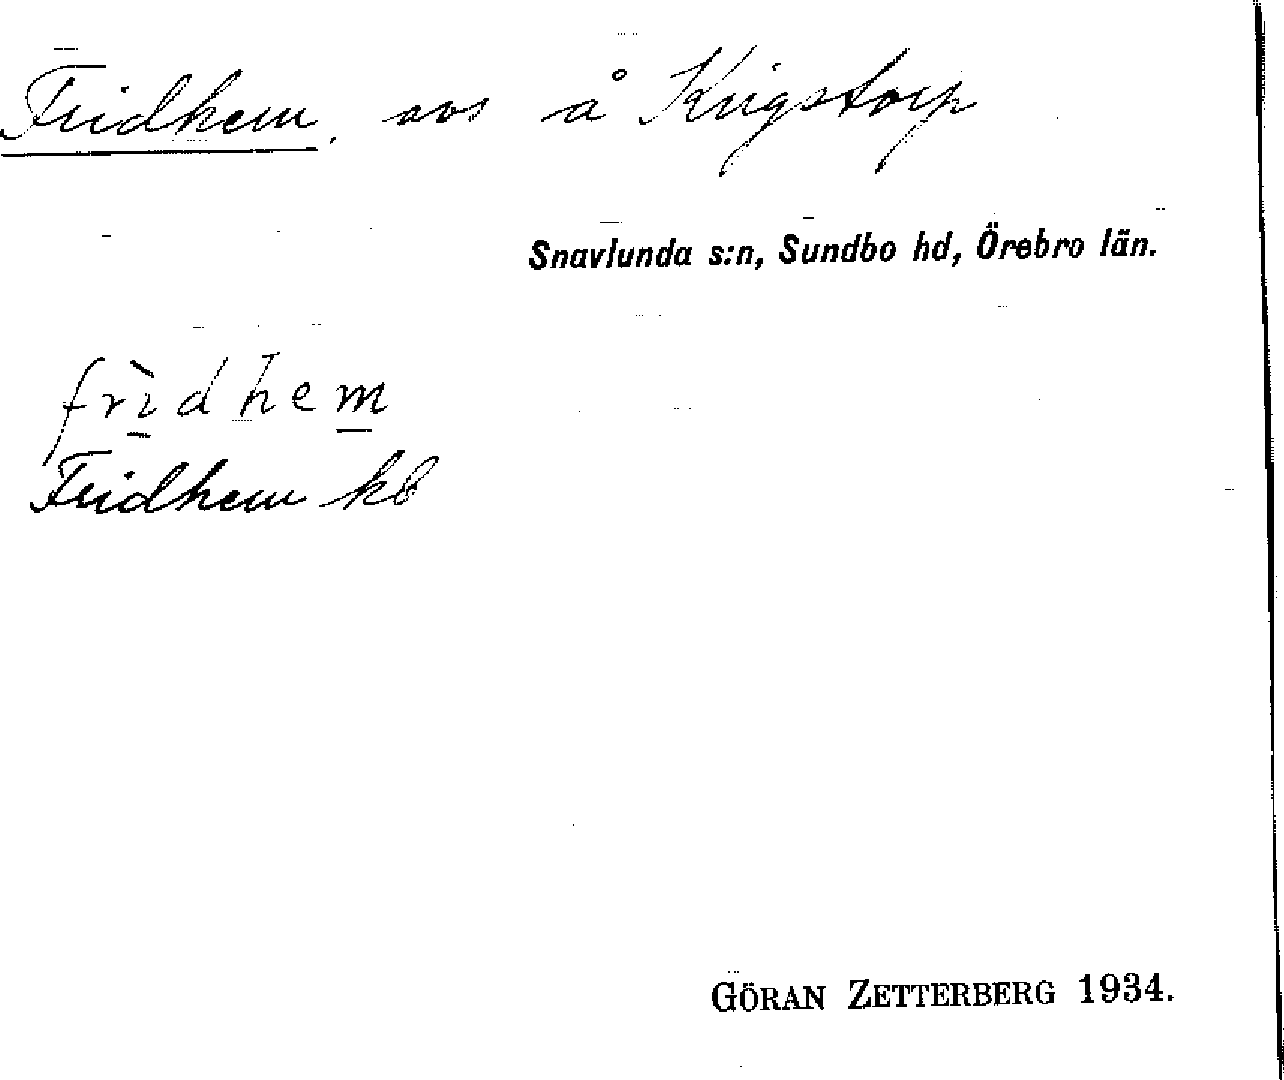 Fridhem, avs å Krigstorp
Snavlunda s:n, Sundbo hd, Örebro län.
frì̠dhem̠
Fridhem kb
GÖRAN ZETTERBERG 1934.